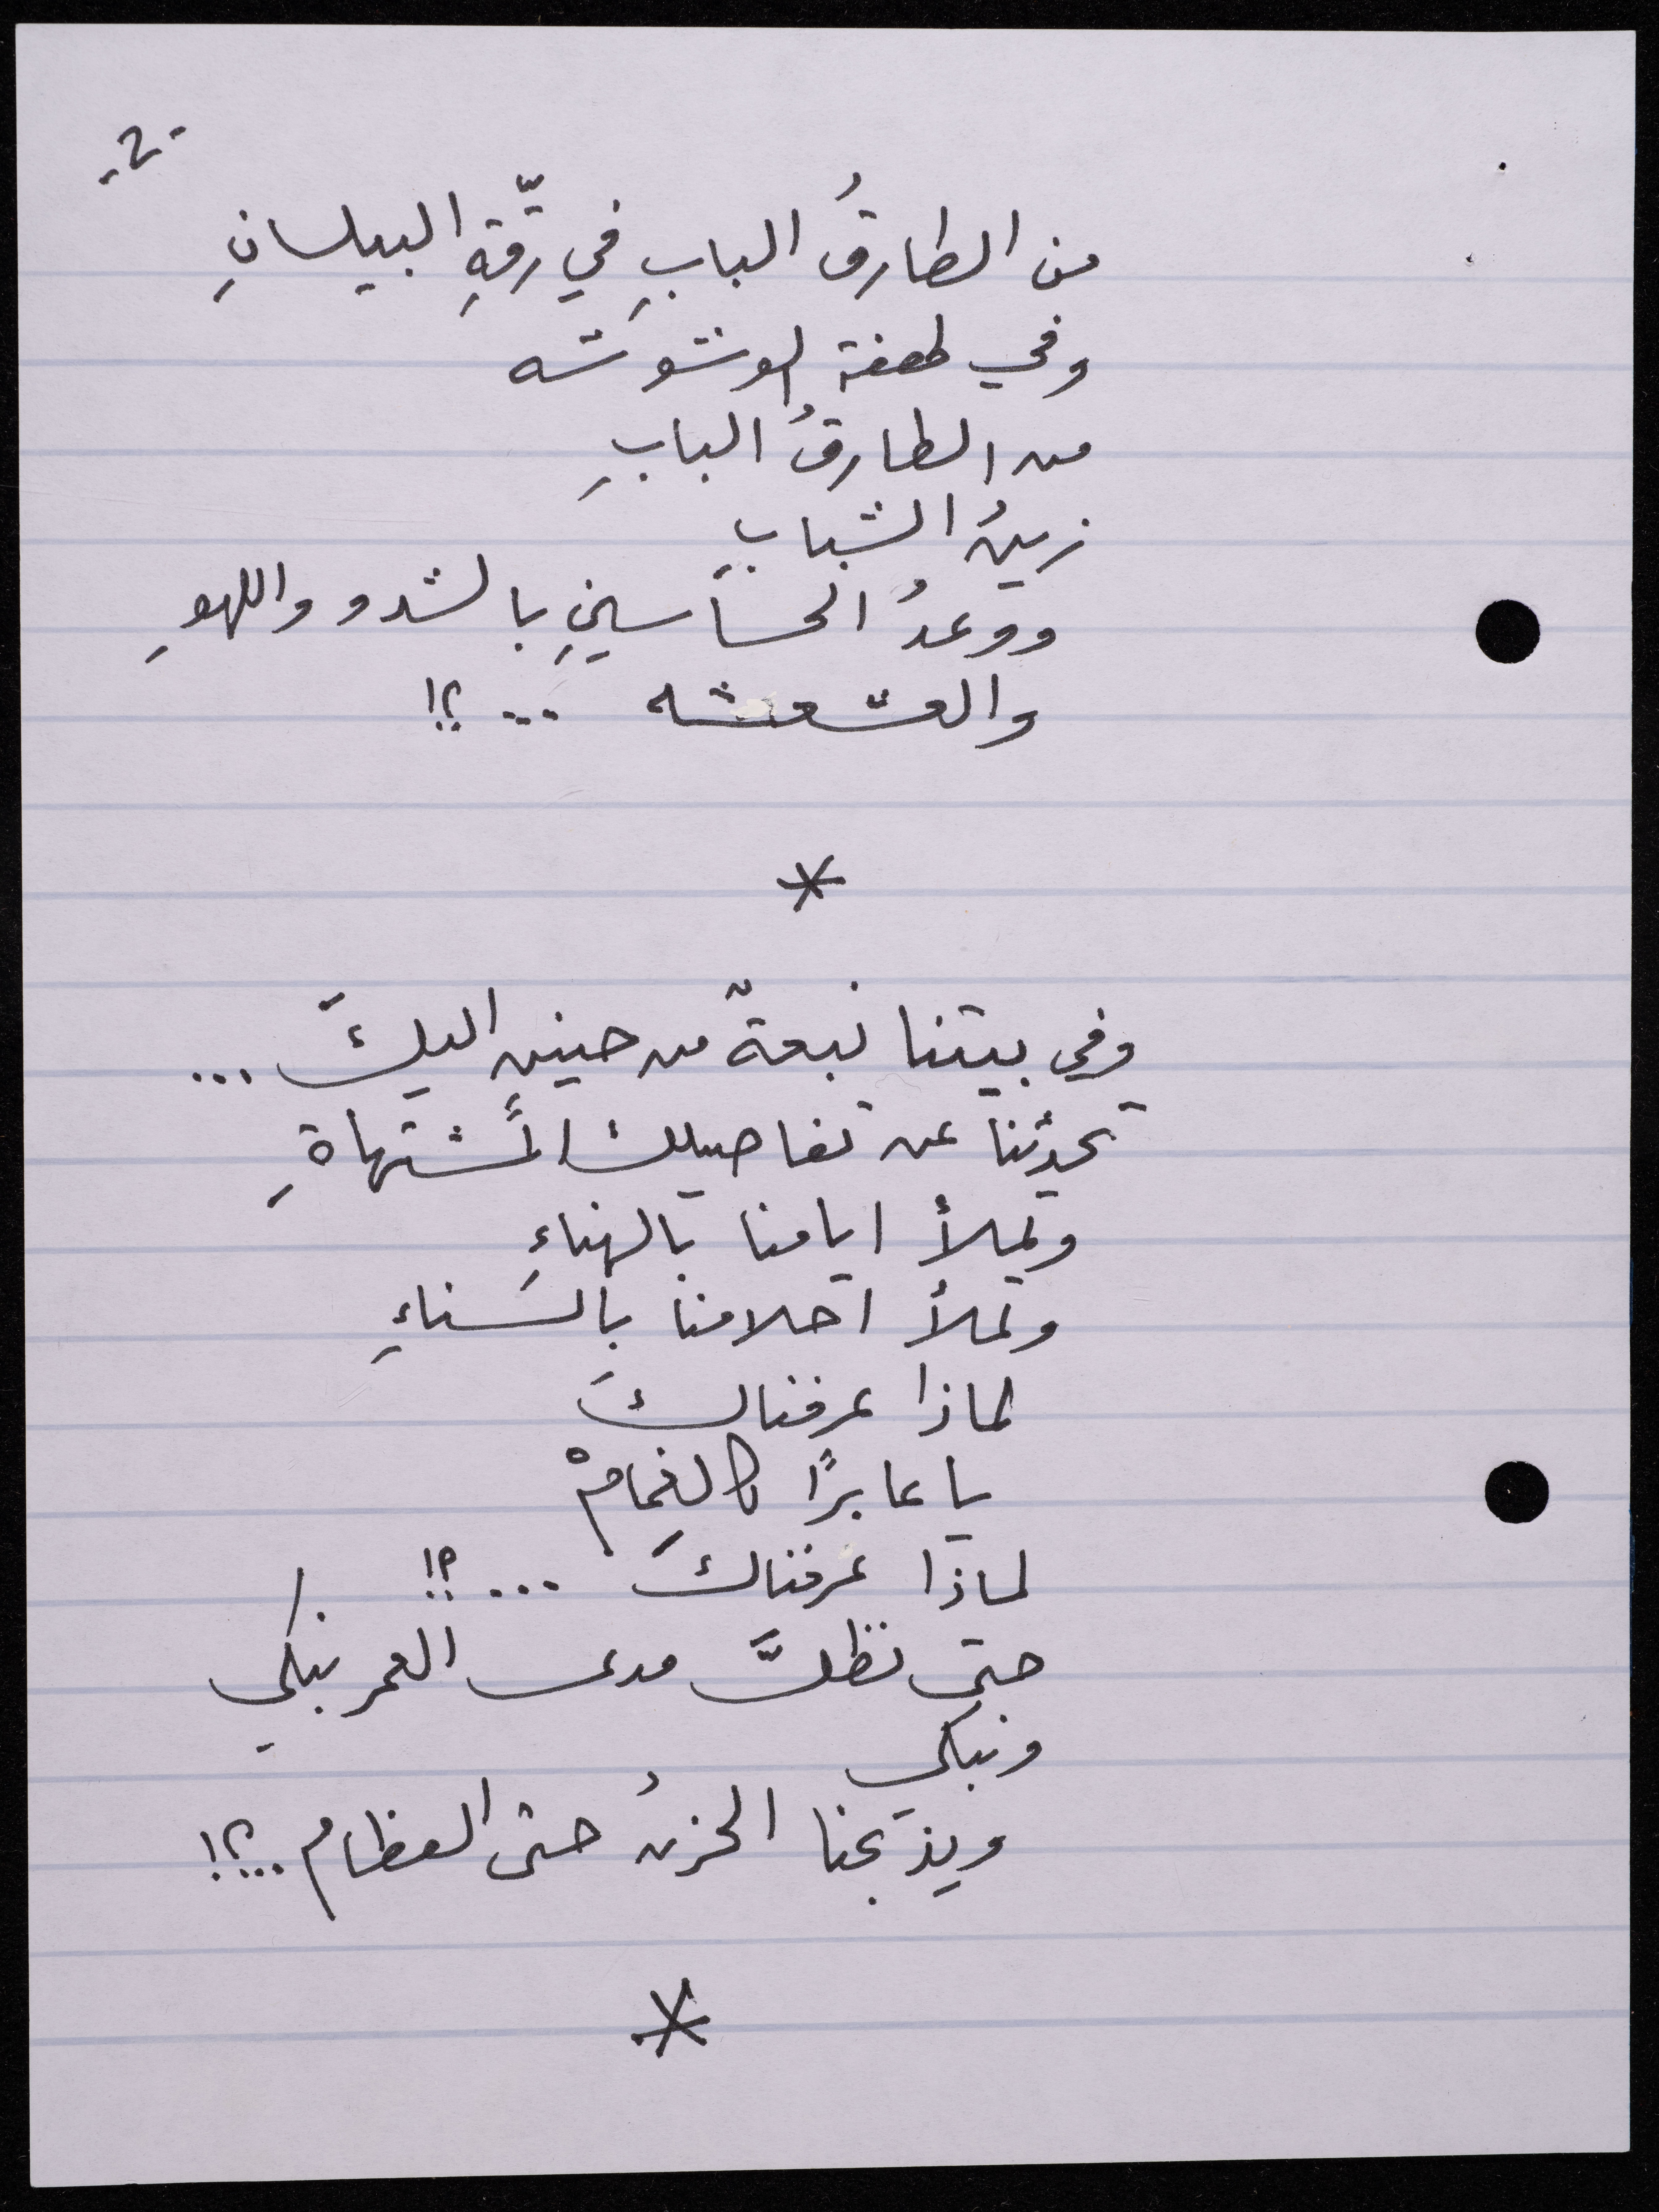 -2-
من الطارقُ البابِ في رقّةِ البيلسانِ
وفي لهفة الوشوشه
من الطارقُ البابِ
زينُ الشبابِ
ووعدُ الحساسينِ بالشدو واللهوِ
والعشعشه ...؟!
*
وفي بيتنا نبعةٌ من حنينٍ اليكَ ...
تحدثنا عن تفاصيلك المُشتهاةِ
وتملأ ايامنا بالهناءِ
وتملأ احلامنا بالسَناءِ
لماذا عرفناكَ
يا عابرًا كالغمامْ
لماذا عرفناكَ ...؟!
حتى نظلَّ مدى العمر نبكي
ونبكي
ويذبحنا الحزنُ حتى العظام ...؟!
*